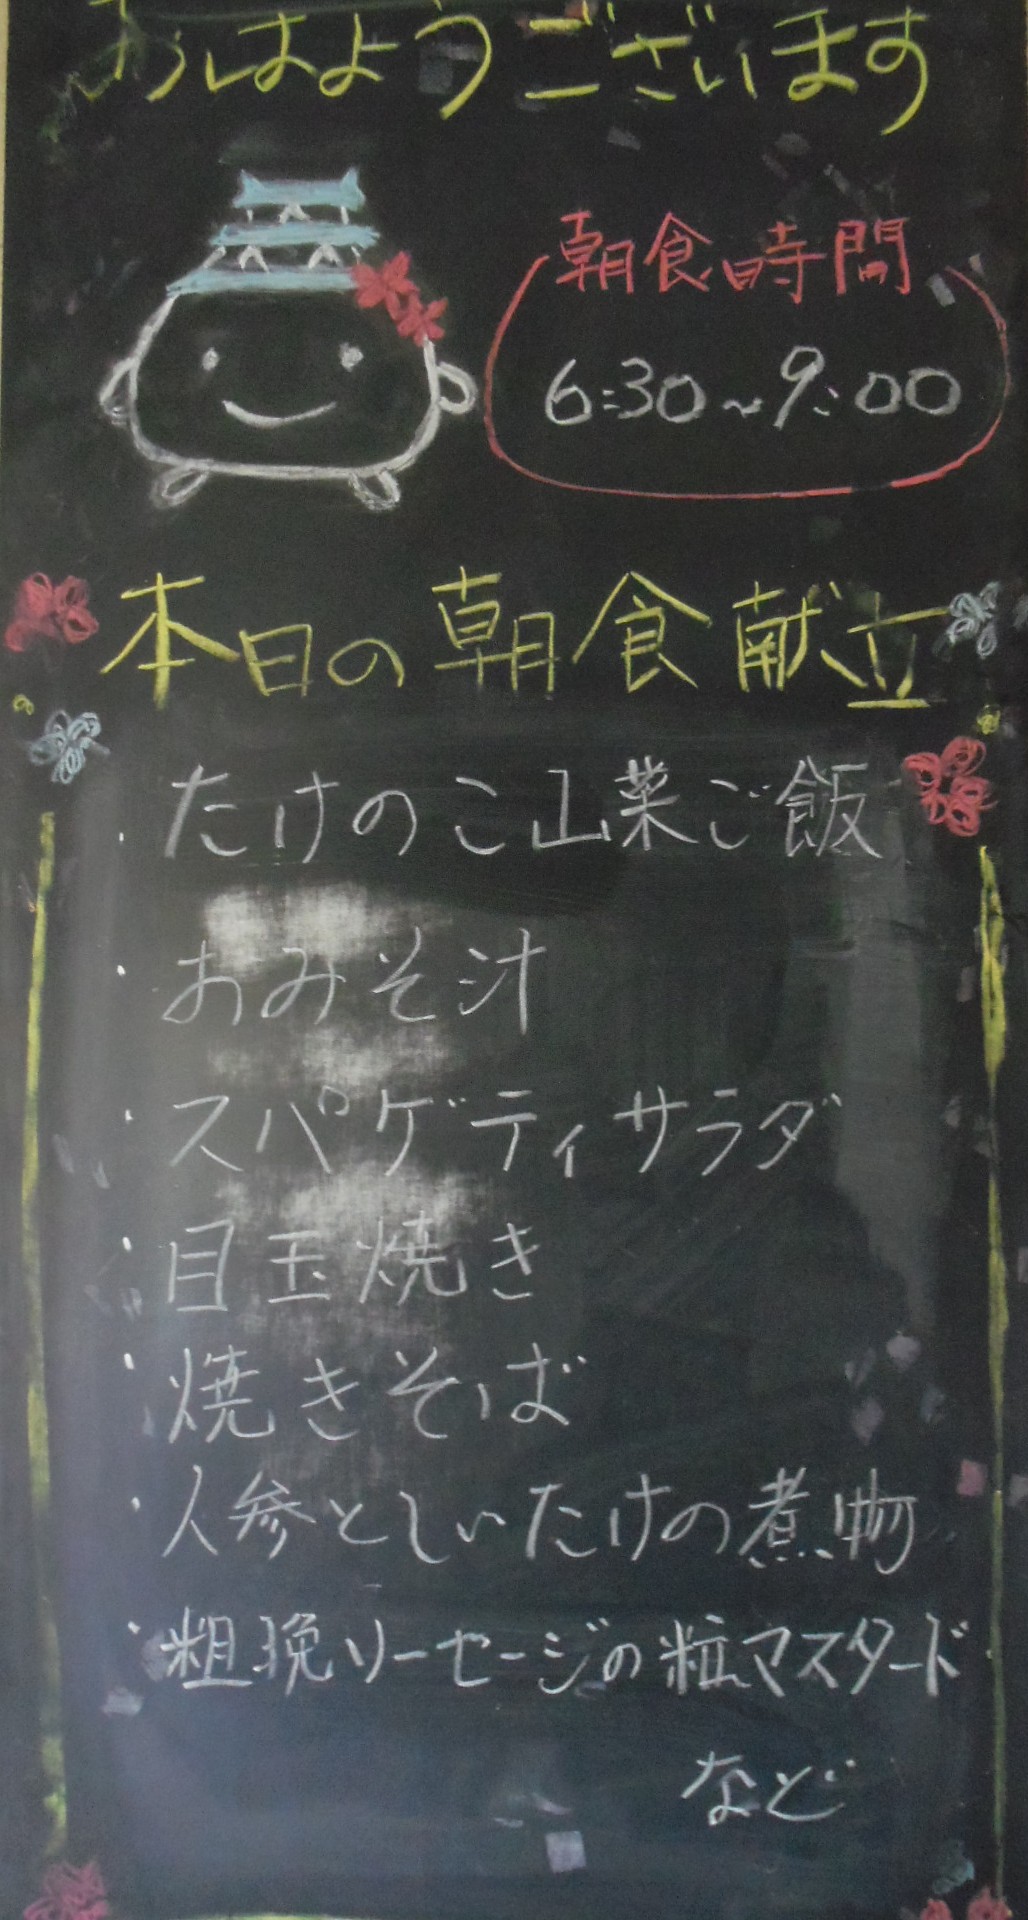 おはようございます
朝食時間
6:30~9:00
本日の朝食献立
・たけのこ山菜ご飯
・おみそ汁
・スパゲティサラダ
・目玉焼き
・焼きそば
・人参としいたけの煮物
・粗晩ソーセージの粒マスタード
など